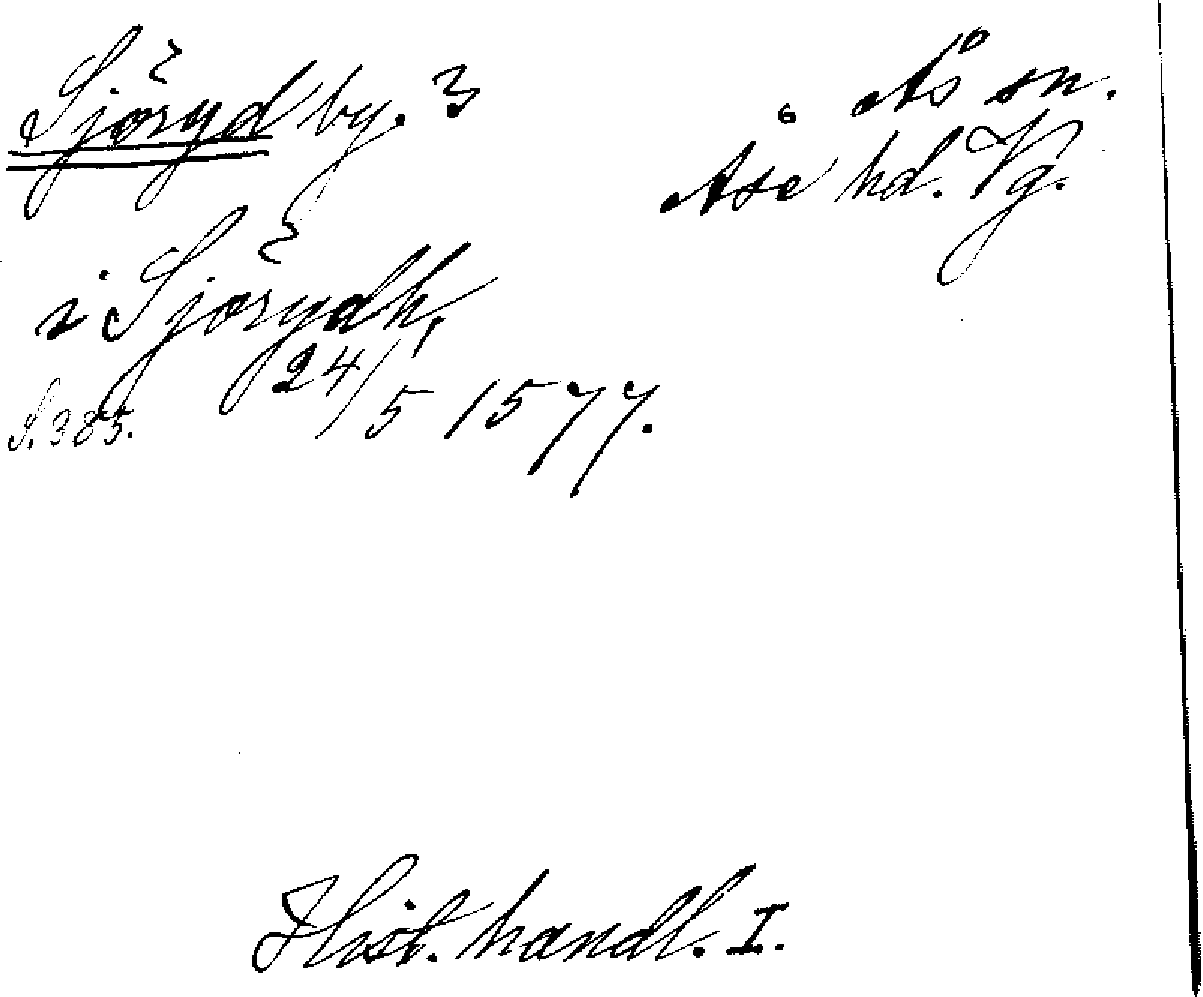 Sjöryd by. 3
Ås sn.
Åse hd. Vg.
i Sjörydh,
24/5 1577.
S. 385.
Hist. handl. I.